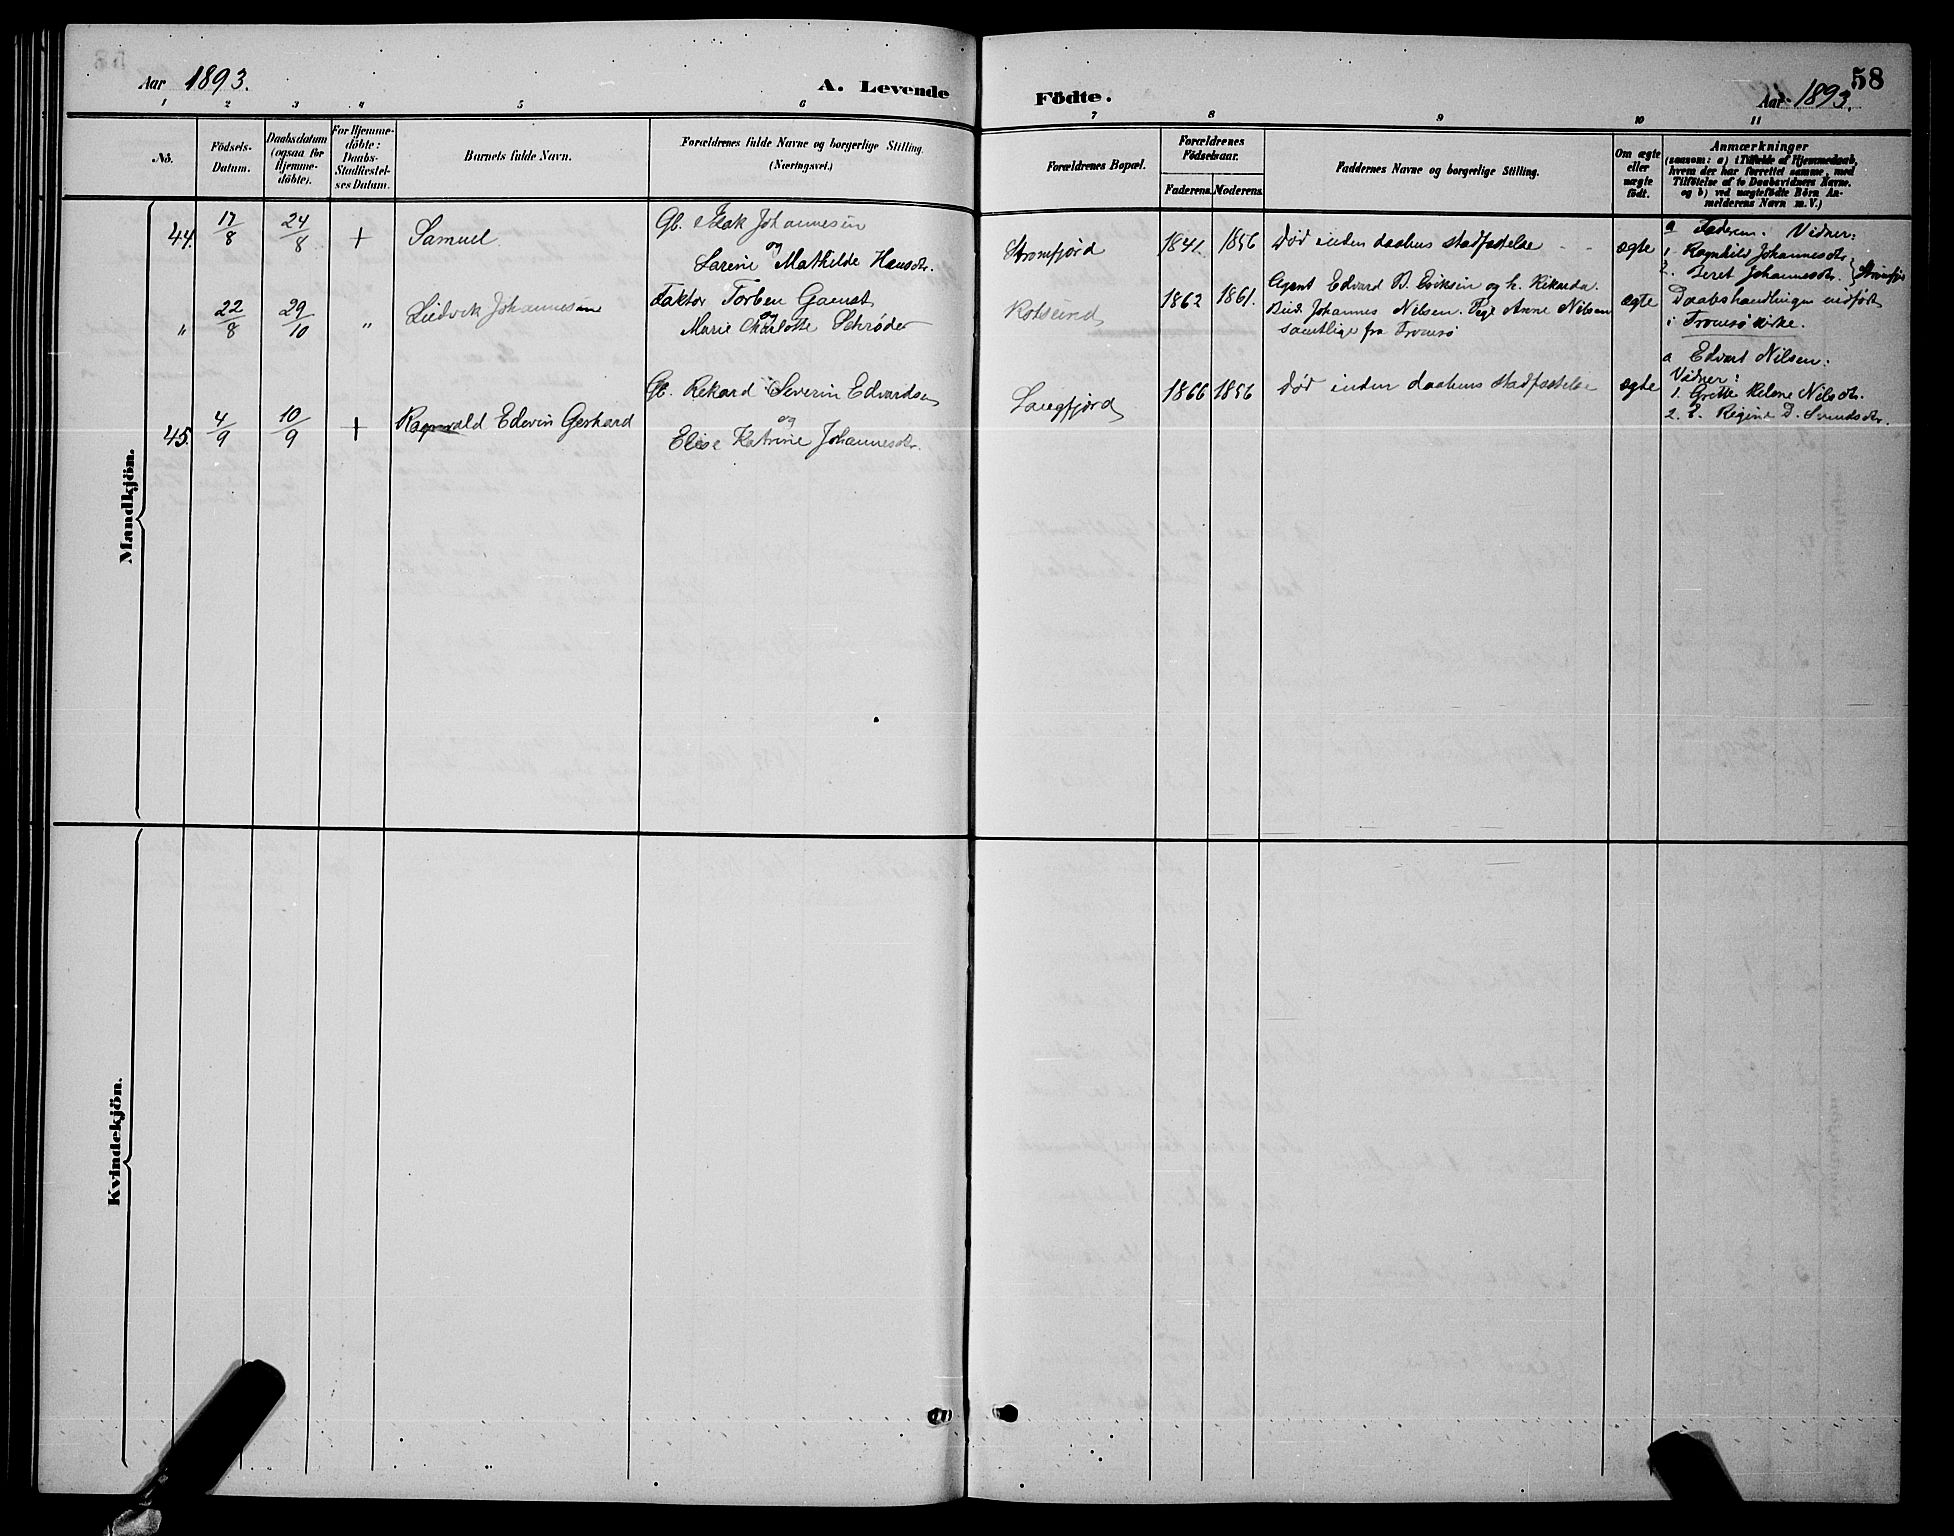 58
Aar 1893.
A. Levende Födte.
Aar 1893.
1 2 3 4 5 6 7 8 9 10 11
No.
Födsels-Datum.
Daabsdatum (ogsaa for Hjemme-döbte).
For Hjemme-döbte: Daabs-Stadfæstel-ses Datum.
Barnets fulde Navn.
Forældrenes fulde Navne og borgerlige Stilling. (Næringsvei.)
Forældrenes Bopæl.
Forældrenes Födselsaar.
Faderens. Moderens.
Faddernes Navne og borgerlige Stilling.
Om ægte eller uægte födt.
Anmærkninger
(saasom: a) i Tilfælde af Hjemmedaab,
hvem der har forrettet samme, med
Tilföielse af to Daabsvidners Navne.
og b) ved uægtefödte Börn An-
melderens Navn m. V.)
Mandkjön.
44. 17/8 24/8 + Samuel
Gb. Isak Johannesen
og
Larine Mathilde Hansdtr.
Strømfjord 1841 1856 Død inden daabens stadfæstelse - - ægte
a Faderen. Vidner:
1. Ragnhild Johannesdtr.
2. Beret Johannesdtr. } Strømfj
" 22/8 29/10 " Ludvik Johannesen
Faktor Torben Gamst
og
Marie Charlotte Schrøder
Rotsund 1862 1861. Agent Edvard B. Eriksen og h. Rikarda.
Bud. Johannes Nilsen. Pige Anne Nilsen
samtlige fra Tromsø
ægte
Daabshandlingen indført
i Tromsø kirke.
45. 4/9 10/9 + Ragnvald Edevin Gerhard
Gb. Rekard Severin Edvardsen
og
Elise Katrine Johannesdtr.
Langfjord 1866 1856 Død inden daabens stadfæstelse ægte
a Edvart Nilsen.
Vidner:
1. Grette Helene Nilsdtr.
2. E. Regine D. Svendsdtr.
Kvindekjön.